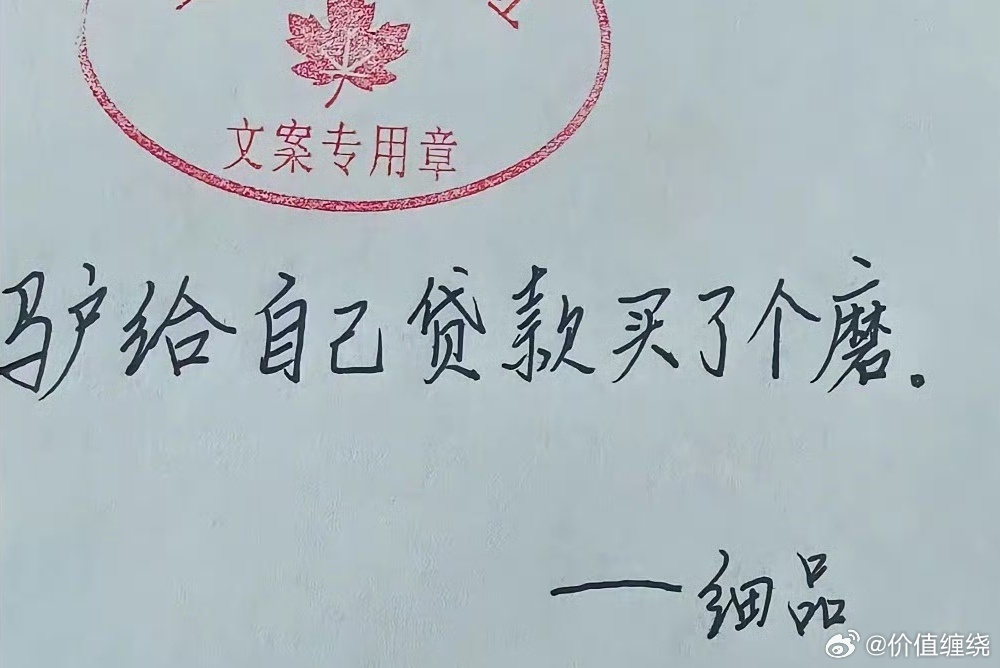 文案专用章
驴给自己贷款买了个磨。
——细品
@价值缠绕